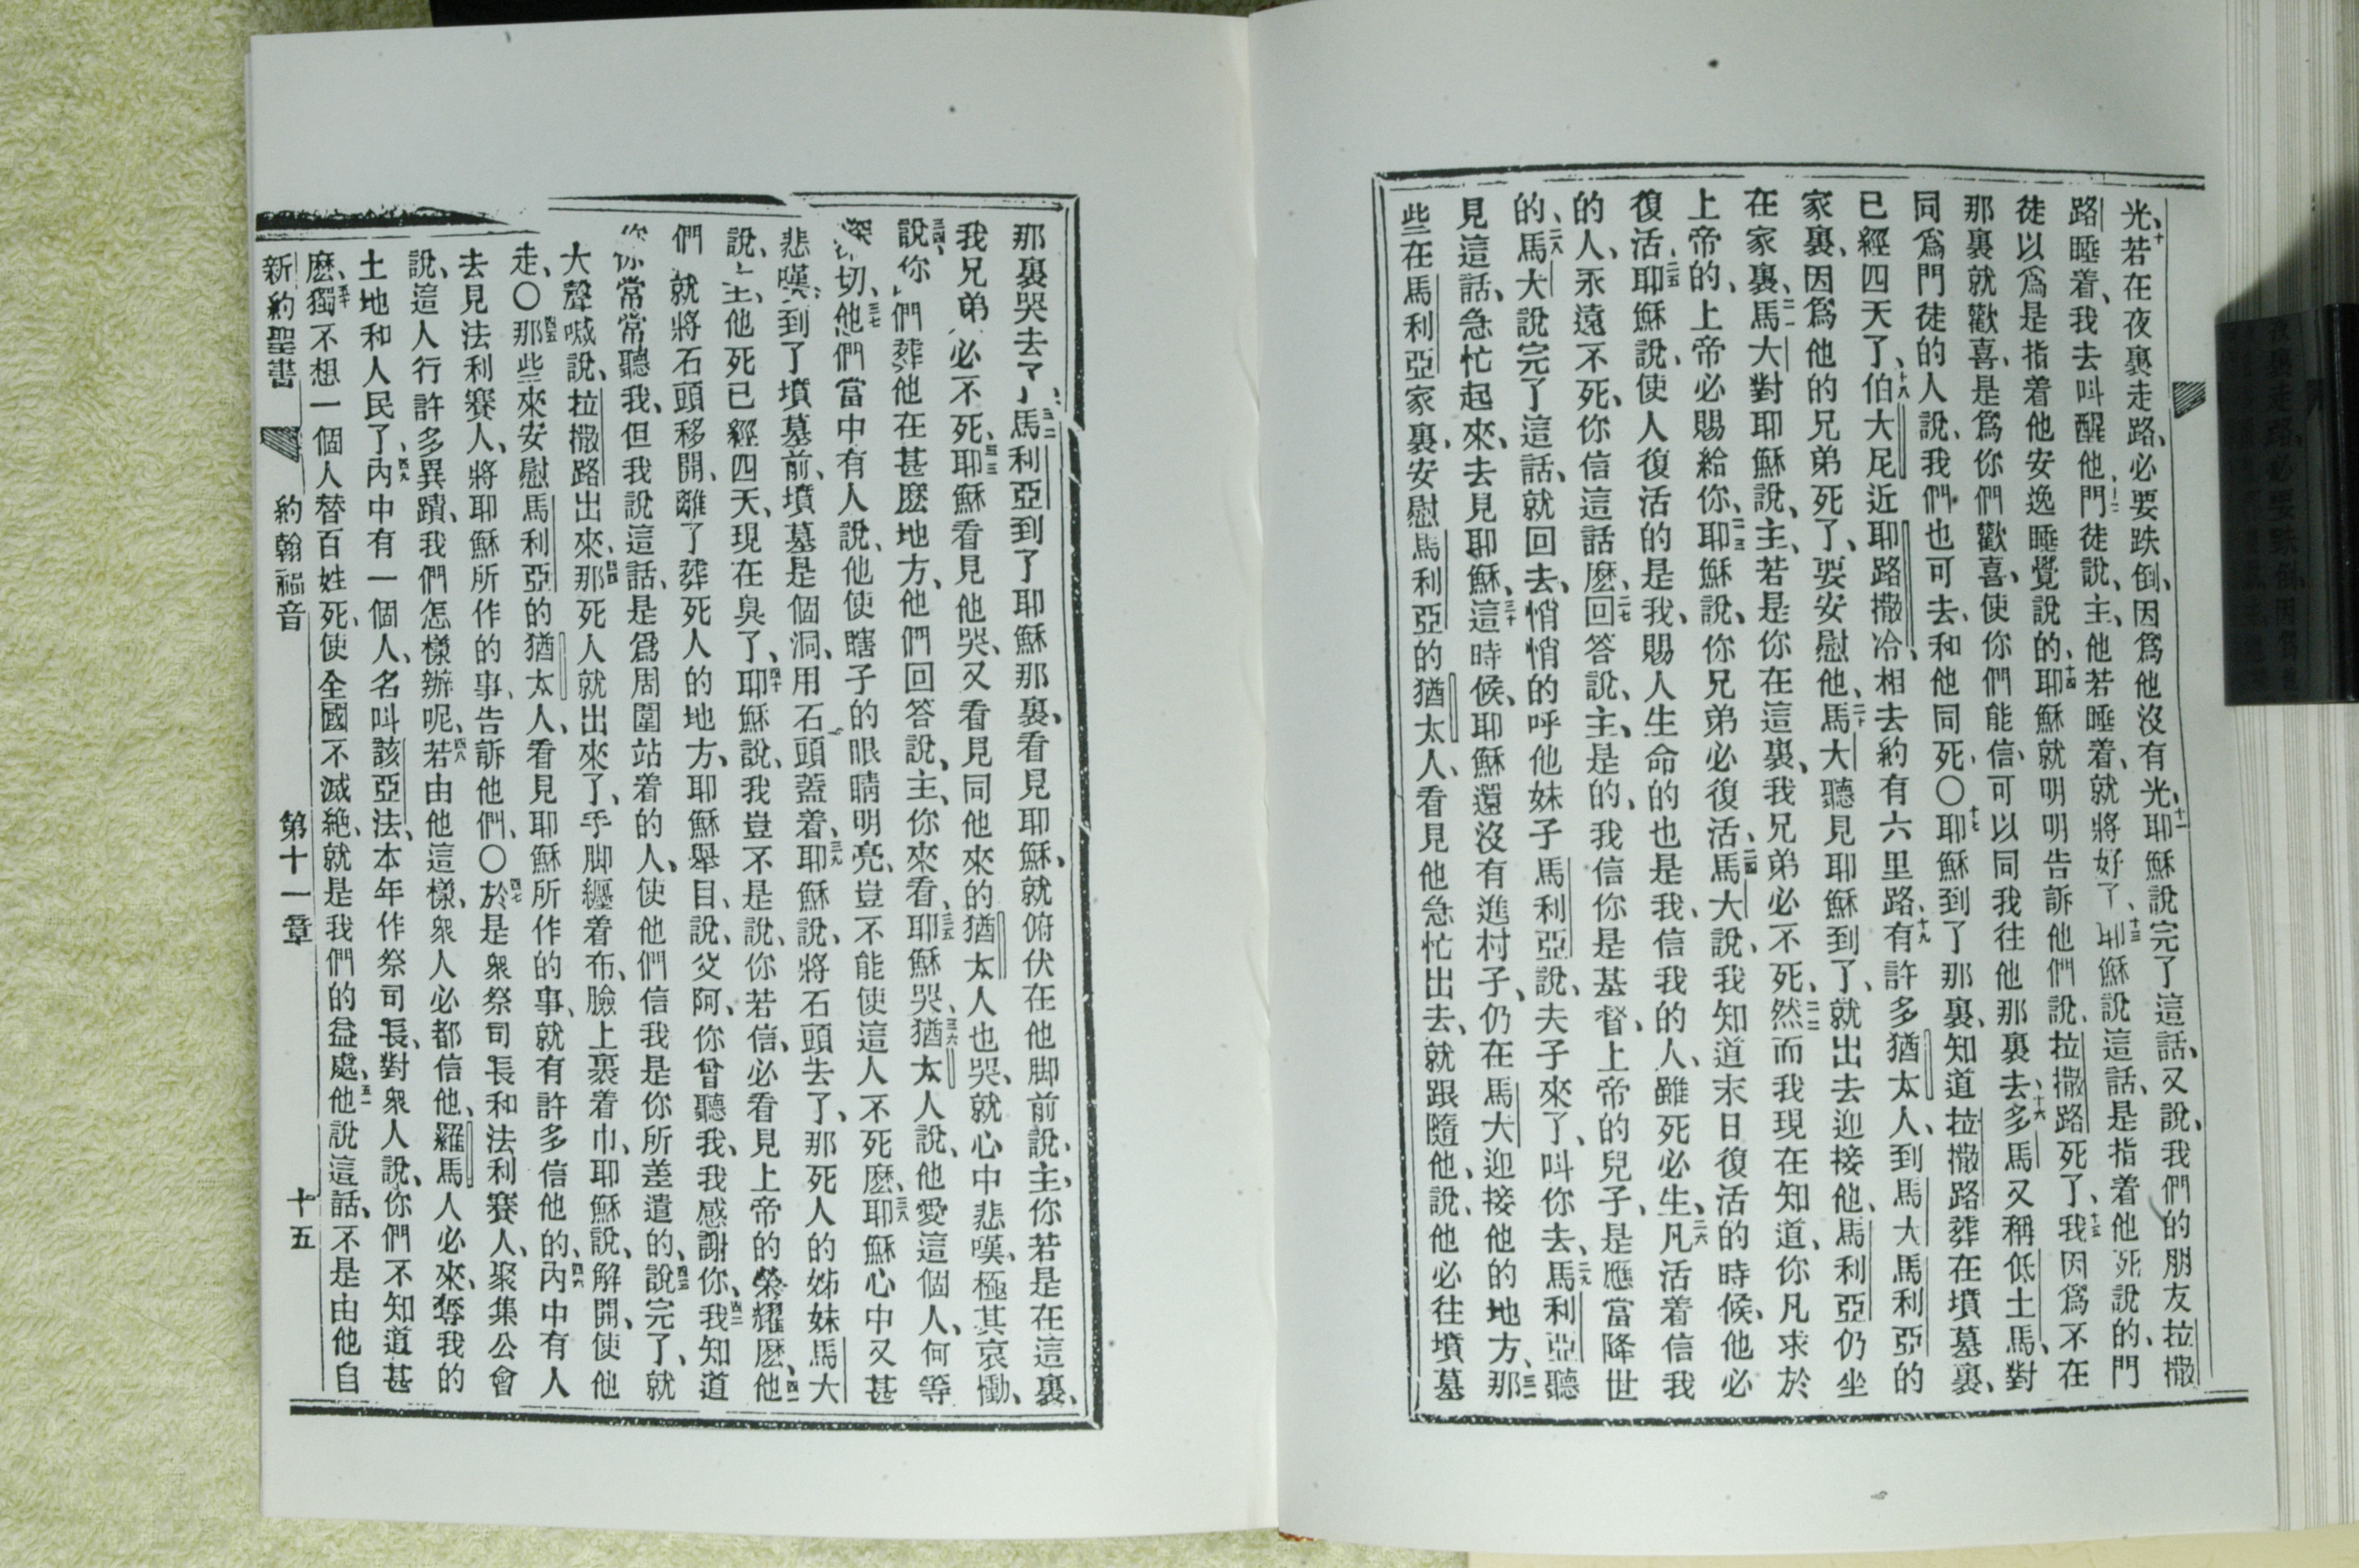 光、十若在夜裏走路、必要跌倒、因爲他沒有光、十一耶穌說完了這話、又說、我們的朋友拉撒
路睡着、我去叫醒他、十二門徒說、主、他若睡着、就將好了、十三耶穌說這話、是指着他死說的、門
徒以爲是指着他安逸睡覺說的、十四耶穌就明明告訴他們說、拉撒路死了、十五我因爲不在
那裏就歡喜、是爲你們歡喜、使你們能信、可以同我往他那裏去、十六多馬又稱低土馬、對
同爲門徒的人說、我們也可去、和他同死、〇十七耶穌到了那裏、知道拉撒路葬在墳墓裏、
已經四天了、十八伯大尼近耶路撒冷、相去約有六里路、十九有許多猶太人、到馬大馬利亞的
家裏、因爲他的兄弟死了、要安慰他、二十馬大聽見耶穌到了、就出去迎接他、馬利亞仍坐
在家裏、二一馬大對耶穌說、主、若是你在這裏、我兄弟必不死、二二然而我現在知道、你凡求於
上帝的、上帝必賜給你、二三耶穌說、你兄弟必復活、二四馬大說、我知道末日復活的時候、他必
復活、二五耶穌說、使人復活的是我、賜人生命的也是我、信我的人、雖死必生、二六凡活着信我
的人、永遠不死、你信這話麽、二七回答說、主、是的、我信你是基督、上帝的兒子、是應當降世
的、二八馬大說完了這話、就回去、悄悄的呼他妹子馬利亞說、夫子來了、叫你去、二九馬利亞聽
見這話、急忙起來、去見耶穌、三十這時候、耶穌還沒有進村子、仍在馬大迎接他的地方、三一那
些在馬利亞家裏、安慰馬利亞的猶太人、看見他急忙出去、就跟隨他、說、他必往墳墓
那裏哭去了、三二馬利亞到了耶穌那裏、看見耶穌、就俯伏在他脚前說、主、你若是在這裏、
我兄弟必不死、三三耶穌看見他哭、又看見同他來的猶太人也哭、就心中悲嘆、極其哀慟、
三四說、你們葬他在甚麽地方、他們回答說、主、你來看、三五耶穌哭、三六猶太人說、他愛這個人、何等
深切、三七他們當中有人說、他使瞎子的眼睛明亮、豈不能使這人不死麽、三八耶穌心中又甚
悲嘆、到了墳墓前、墳墓是個洞、用石頭蓋着、三九耶穌說、將石頭去了、那死人的姊妹馬大
說、主、他死已經四天、現在臭了、四十耶穌說、我豈不是說、你若信、必看見上帝的榮耀麽、四一他
們就將石頭移開、離了葬死人的地方、耶穌舉目、說、父阿、你曾聽我、我感謝你、四二我知道
你常常聽我、但我說這話、是爲周圍站着的人、使他們信我是你所差遣的、四三說完了、就
大聲喊說、拉撒路出來、四四那死人就出來了、手脚纏着布、臉上裹着巾、耶穌說、解開、使他
走、〇四五那些來安慰馬利亞的猶太人、看見耶穌所作的事、就有許多信他的、四六內中有人
去見法利賽人、將耶穌所作的事、告訴他們、〇四七於是衆祭司長和法利賽人、聚集公會
說、這人行許多異蹟、我們怎樣辦呢、四八若由他這樣、衆人必都信他、羅馬人必來、奪我的
土地和人民了、四九內中有一個人、名叫該亞法、本年作祭司長、對衆人說、你們不知道甚
麽、五十獨不想一個人替百姓死、使全國不滅絕、就是我們的益處、五一他說這話、不是由他自
新約聖書 約翰福音 第十一章 十五